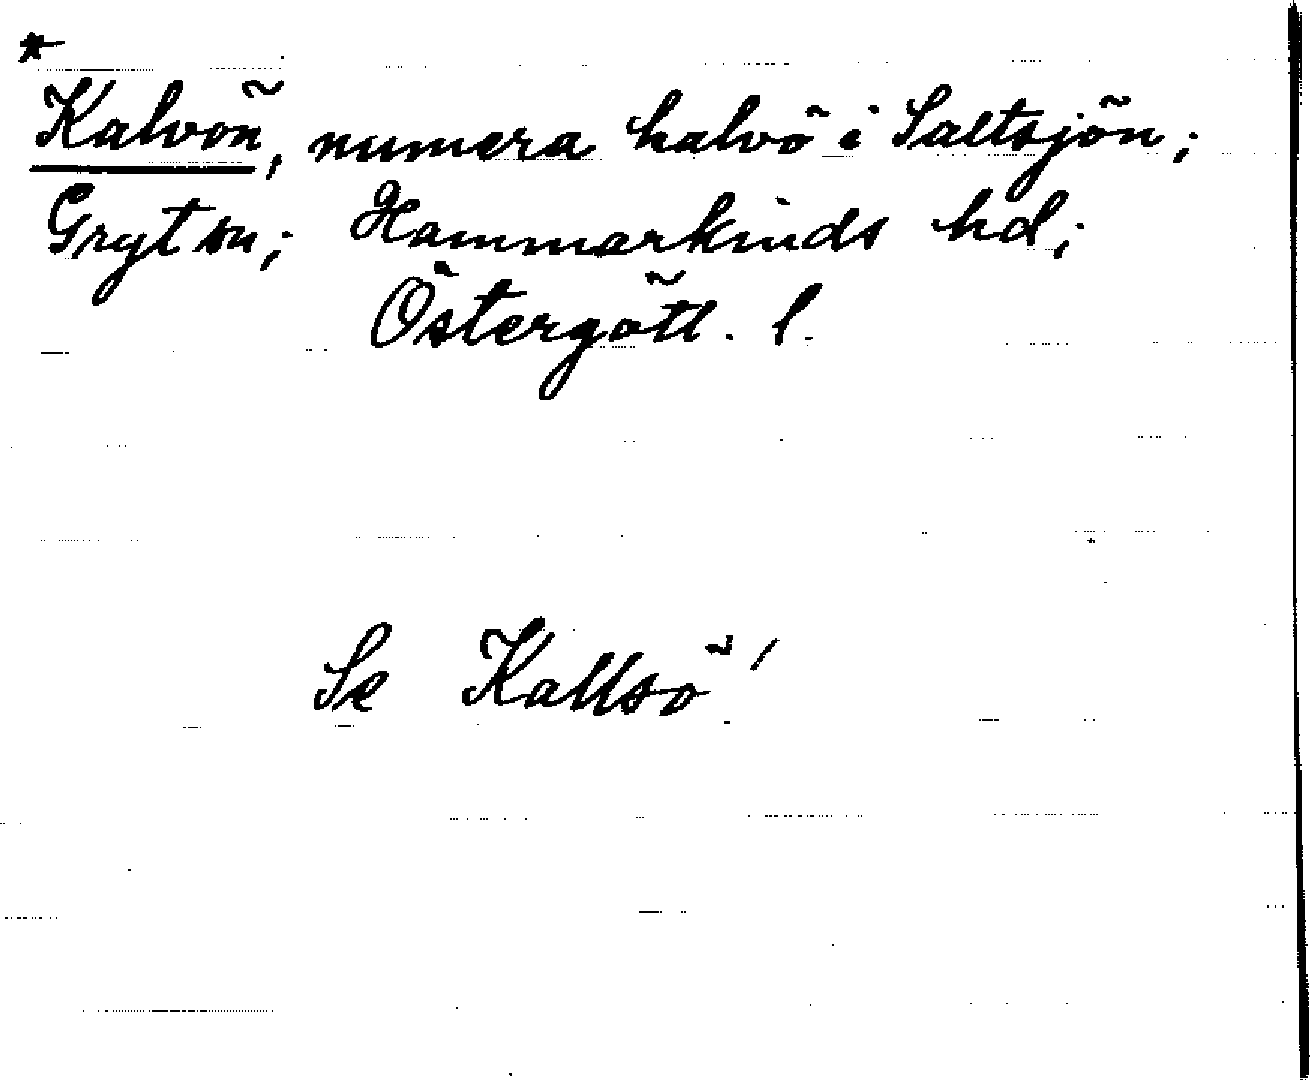 *
Kalvön, numera halvö i Saltsjön;
Gryt sn; Hammarkinds hd;
Östergötl. l.
Se Kallsö!